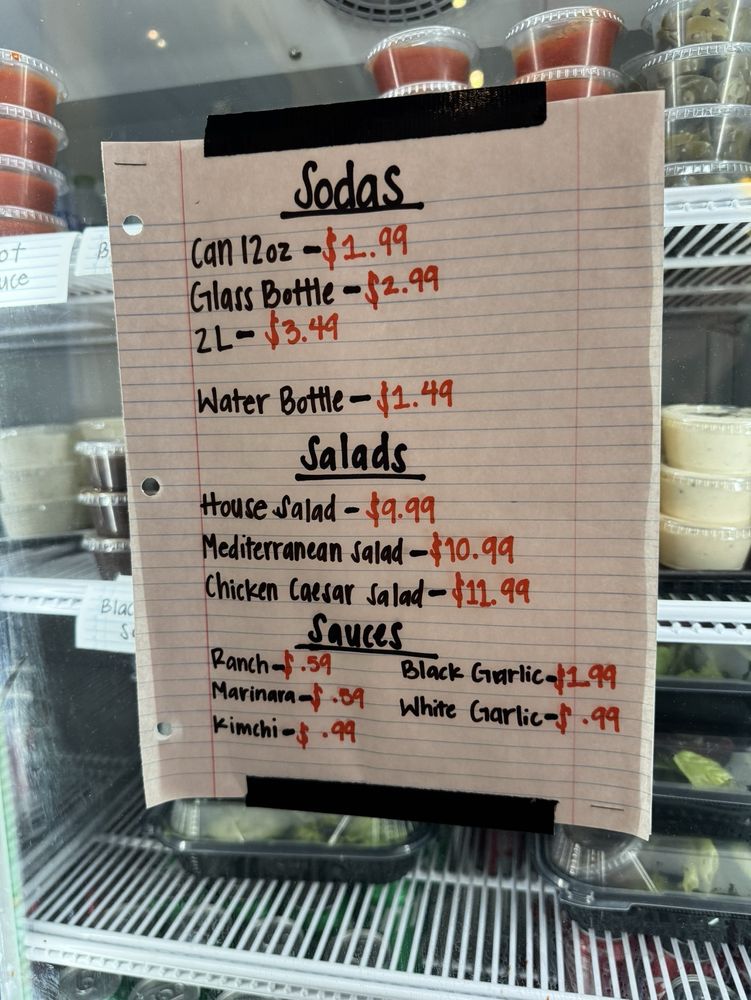 Sodas
Can 12oz - $1.99
Glass Bottle - $2.99
2L - $3.49
Water Bottle - $1.49
Salads
House Salad - $9.99
Mediterranean Salad - $10.99
Chicken Caesar Salad - $11.99
Sauces
Ranch - $.59
Black Garlic - $1.99
Marinara - $.59
White Garlic - $.99
Kimchi - $.99